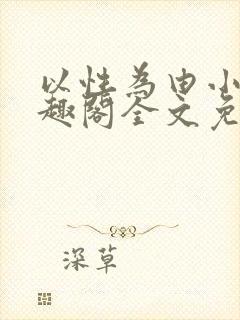 以性为由小
趣阁全文免
深草